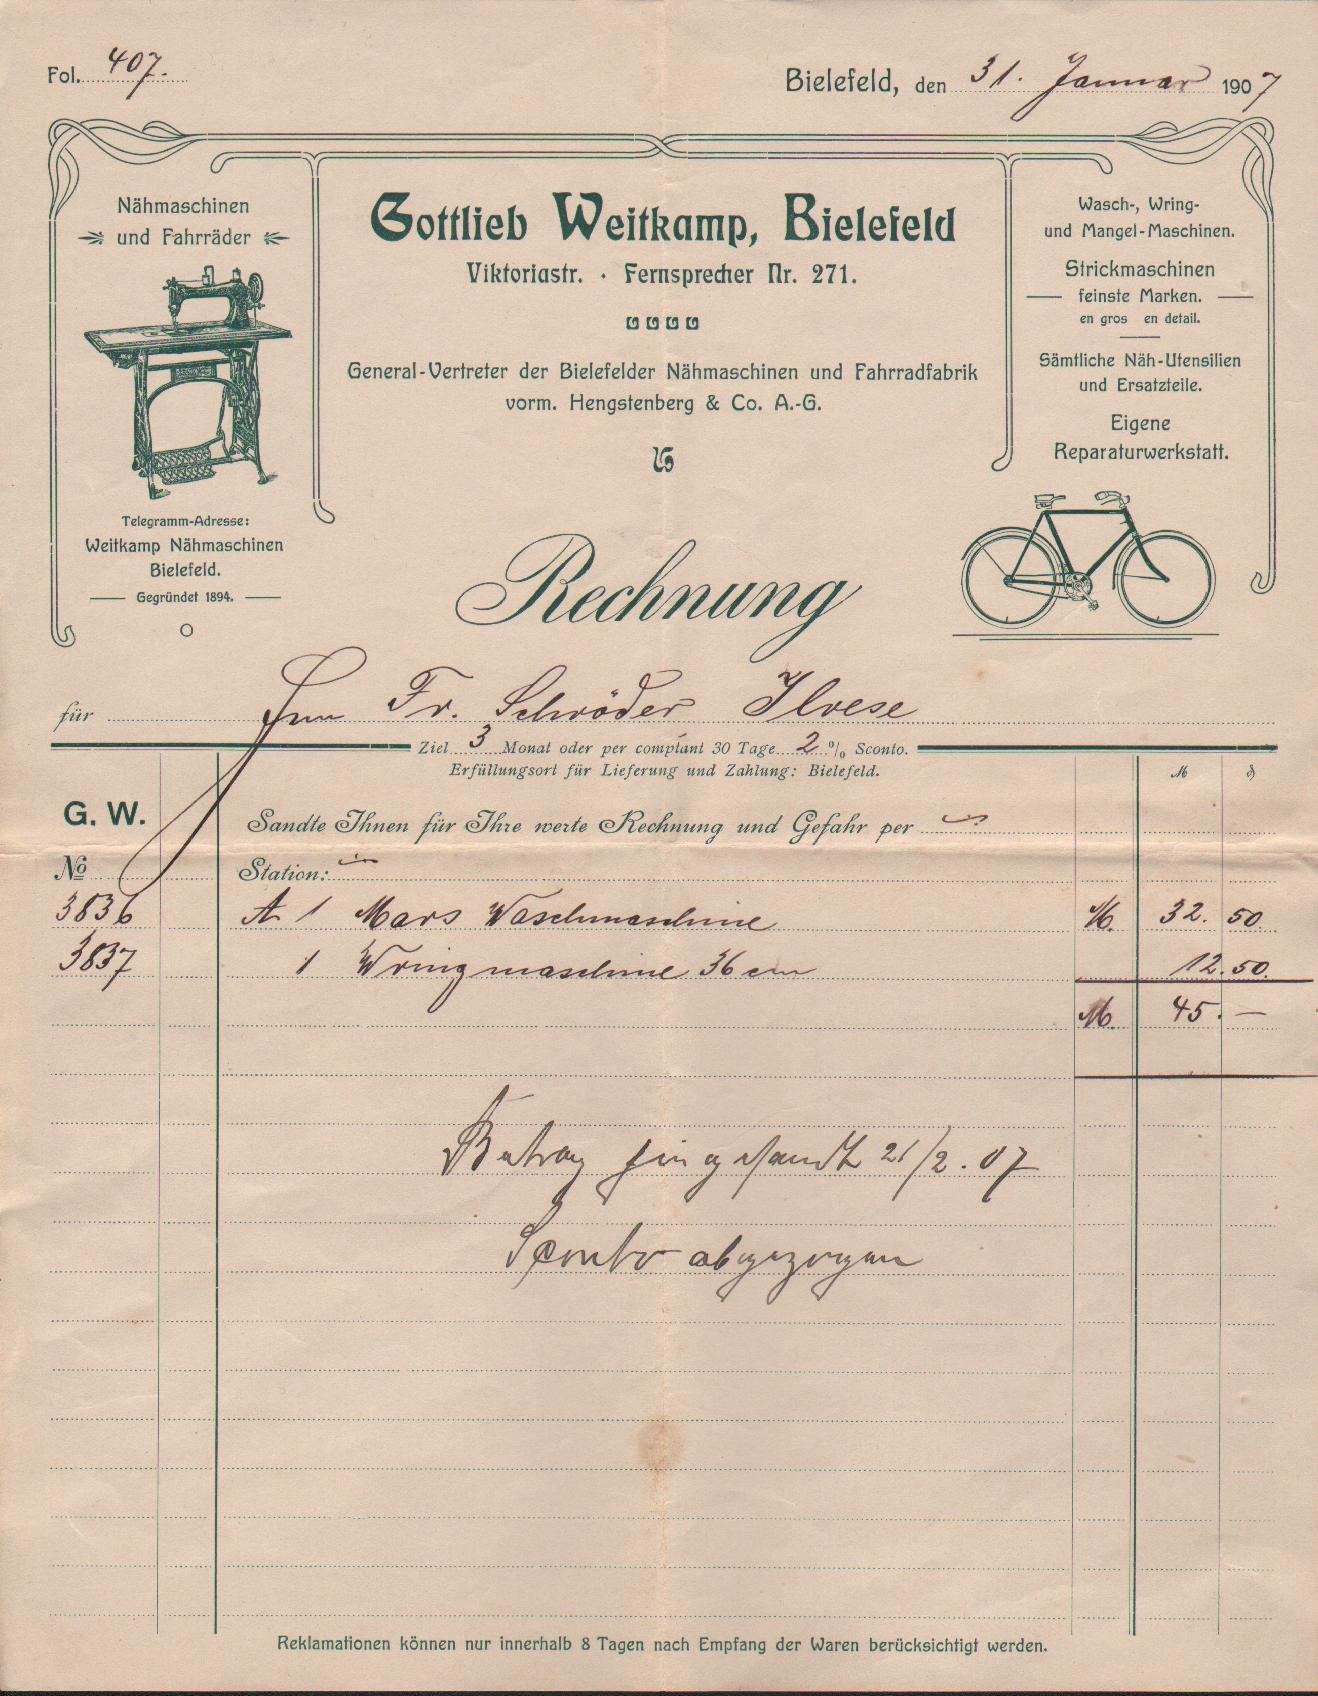 Fol. 407.
Bielefeld, den 31. Januar 1907
Nähmaschinen
und Fahrräder
Telegramm-Adresse:
Weitkamp Nähmaschinen
Bielefeld.
Gegründet 1894.
Gottlieb Weitkamp, Bielefeld
Viktoriastr. · Fernsprecher Nr. 271.
General-Vertreter der Bielefelder Nähmaschinen und Fahrradfabrik
vorm. Hengstenberg & Co. A.-G.
Wasch-, Wring-
und Mangel-Maschinen.
Strickmaschinen
feinste Marken.
en gros en detail.
Sämtliche Näh-Utensilien
und Ersatzteile.
Eigene
Reparaturwerkstatt.
Rechnung
für Herrn Fr. Schröder Ilvese
Ziel 3 Monat oder per comptant 30 Tage 2 % Sconto.
Erfüllungsort für Lieferung und Zahlung: Bielefeld.
M ₰
G. W.
Sandte Ihnen für Ihre werte Rechnung und Gefahr per
No Station:
3836 A 1 Mars Waschmaschine M. 32. 50.
3837 1 Wringmaschine 36 cm 12. 50.
M. 45. —
Betrag eingesandt 21/2. 07
Sconto abgezogen
Reklamationen können nur innerhalb 8 Tagen nach Empfang der Waren berücksichtigt werden.